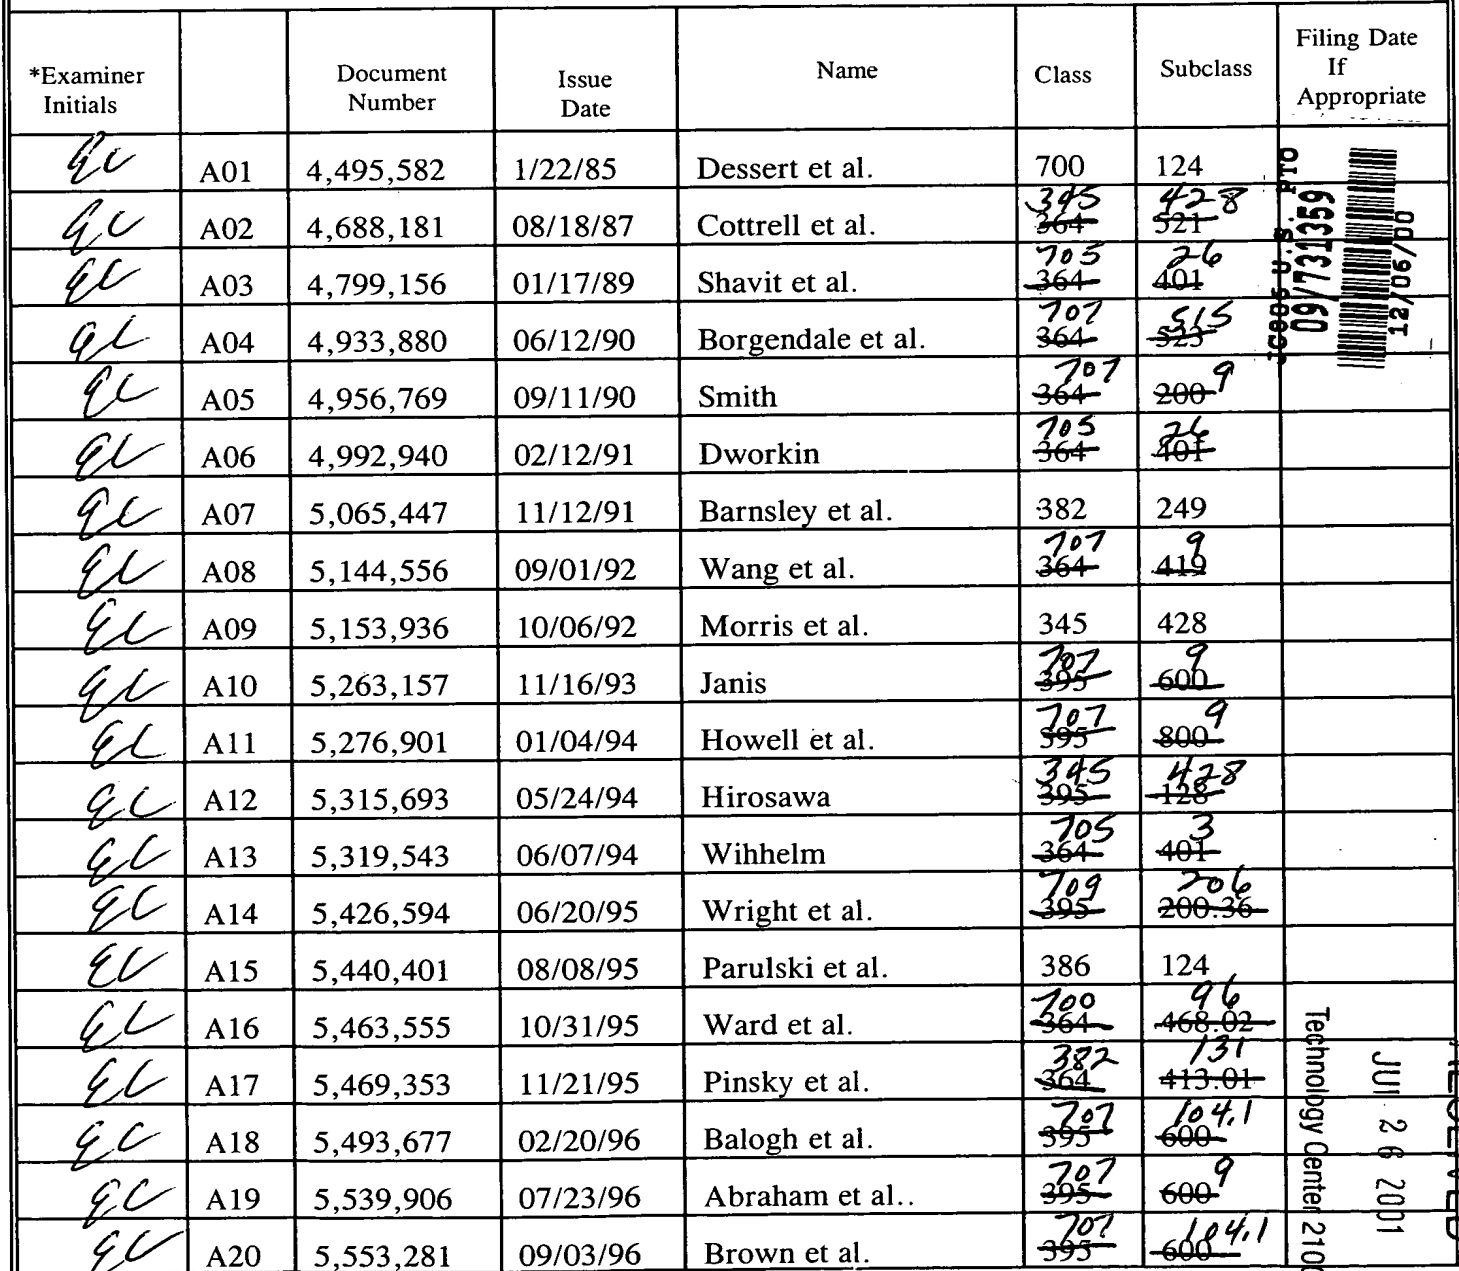 *Examiner Initials Document Number Issue Date Name Class Subclass Filing Date If Appropriate
EC A01 4,495,582 1/22/85 Dessert et al. 700 124
345 428
EC A02 4,688,181 08/18/87 Cottrell et al. 364 521
705 26
EC A03 4,799,156 01/17/89 Shavit et al. 364 401
707 515
EC A04 4,933,880 06/12/90 Borgendale et al. 364 523
707 9
EC A05 4,956,769 09/11/90 Smith 364 200
705 26
EC A06 4,992,940 02/12/91 Dworkin 364 401
EC A07 5,065,447 11/12/91 Barnsley et al. 382 249
707 9
EC A08 5,144,556 09/01/92 Wang et al. 364 419
EC A09 5,153,936 10/06/92 Morris et al. 345 428
707 9
EC A10 5,263,157 11/16/93 Janis 395 600
707 9
EC A11 5,276,901 01/04/94 Howell et al. 395 800
345 428
EC A12 5,315,693 05/24/94 Hirosawa 395 128
705 3
EC A13 5,319,543 06/07/94 Wihhelm 364 401
709 206
EC A14 5,426,594 06/20/95 Wright et al. 395 200.36
EC A15 5,440,401 08/08/95 Parulski et al. 386 124
700 96
EC A16 5,463,555 10/31/95 Ward et al. 364 468.02
382 131
EC A17 5,469,353 11/21/95 Pinsky et al. 364 413.01
707 104.1
EC A18 5,493,677 02/20/96 Balogh et al. 395 600
707 9
EC A19 5,539,906 07/23/96 Abraham et al.. 395 600
707 104.1
EC A20 5,553,281 09/03/96 Brown et al. 395 600
U.S. PTO
09/731359
12/06/00
Technology Center 2100
26 2001